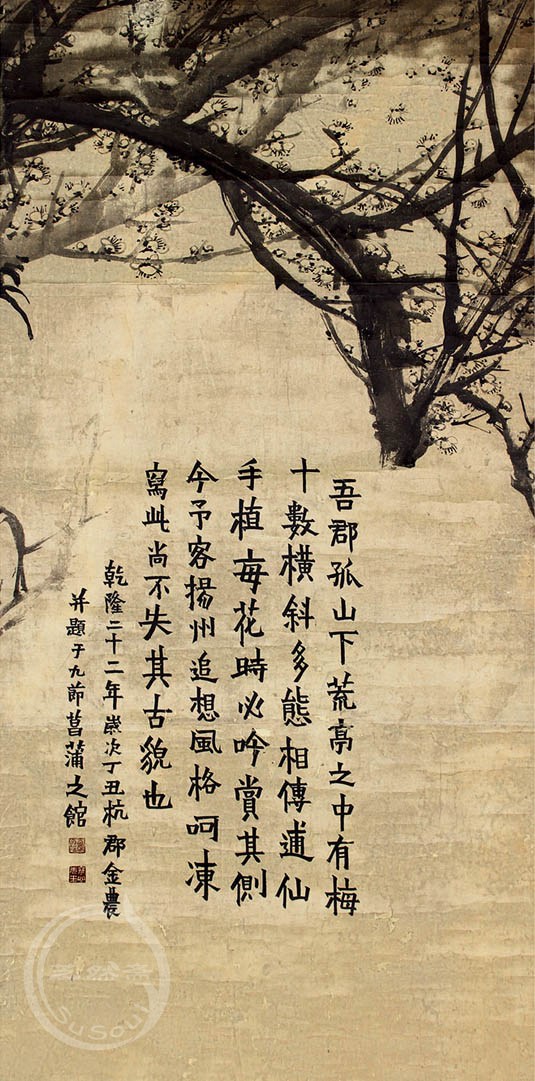 吾郡孤山下荒亭之中有梅
十數橫斜多態相傳逋仙
手植每花時必吟賞其側
今予客揚州追想風格呵凍
寫此尚不失其古貌也
乾隆二十二年歲次丁丑杭郡金農
并題于九節菖蒲之館
SuSoul